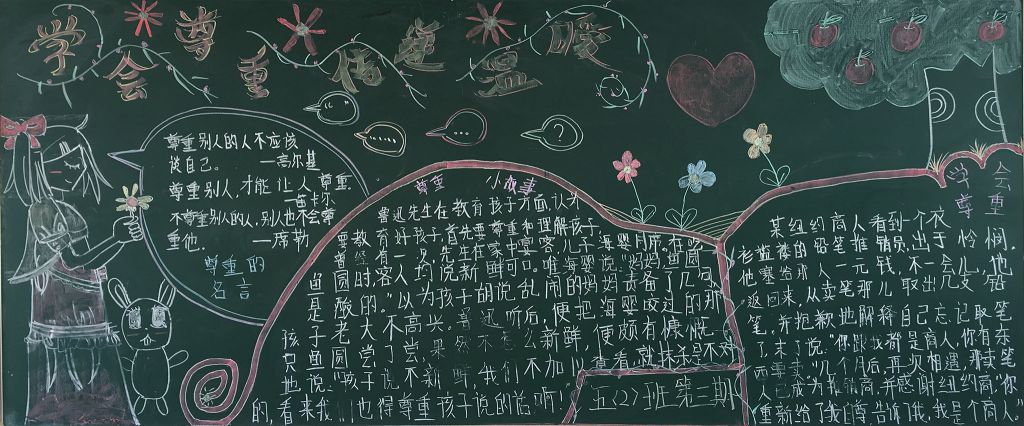 学会尊重 传递温暖
尊重别人的人不应该
谈自己。
—高尔基
尊重别人,才能让人尊重.
—笛卡尔
不尊重别人的人,别人也不会尊
重他.
—席勒
尊重的
名言
尊重 小故事
鲁迅先生在教育孩子方面认为
要教育好孩子,首先要尊重和理解孩子.
有一说,先生在家中宴客,儿子海婴同席.在吃
鱼圆时,客人均说新鲜可口.唯海婴说:"妈妈,鱼圆
是酸的."以为孩子胡说乱闹的妈妈责备了几句,
子老大不高兴。鲁迅听后,便把海婴咬过的那
孩鱼圆尝了尝,果然不怎么新鲜,便颇有慷慨
只地说:"孩子说不新鲜,我们不加以查看,就抹杀是不对
的,看来我们也得尊重孩子说的话啊!
五(2)班第三期
学会
尊重
某纽约商人看到一个衣
衫褴褛的铅笔推销员,出于怜悯,
他塞给那人一元钱,不一会儿,他
返回来,从卖笔那儿取出几支铅
笔,并抱歉地解释自己忘记取笔
了,
"你跟我都是商人,你有东
西要卖."几个月后,再次相遇,那卖笔
人已成为推销商,并感谢纽约商人:"你
重新给了我自尊,告诉了我,我是个商人."